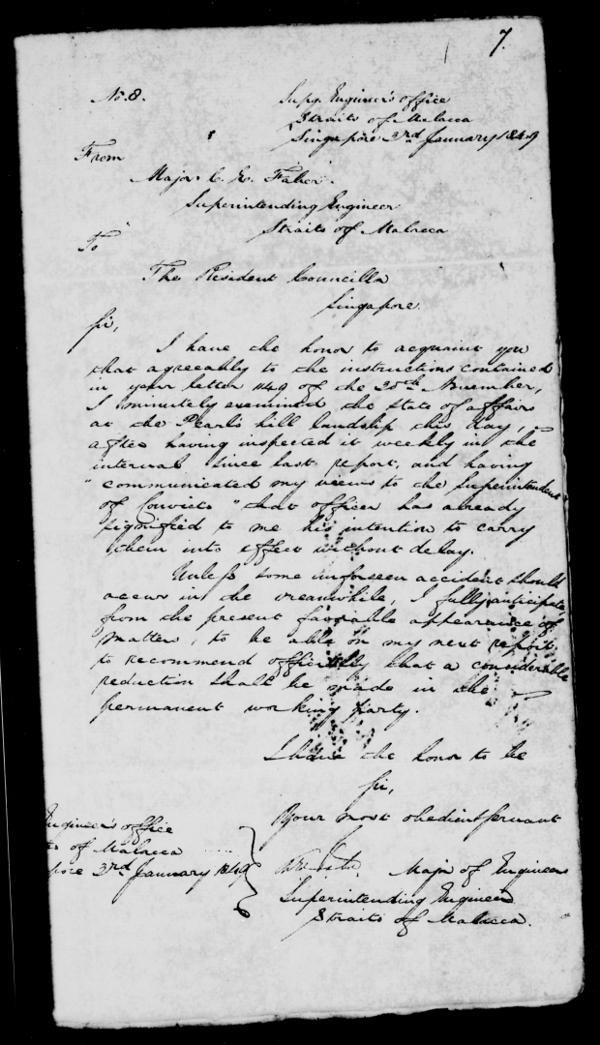 7.
No. 8.
Supg. Engineer's office
Straits of Malacca
Singapore 3rd January 1849
From
Major C. E. Faber.
Superintending Engineer
Straits of Malacca
To
The Resident Councillor
Singapore.
Sir,
I have the honor to acquaint you
that agreeably to the instructions contained
in your letter 1149 of the 20th November,
I minutely examined the state of affairs
at the Pearl's hill landslip this day,
after having inspected it weekly in the
interval since last report, and having
"communicated my views to the Superintendent
of Convicts" that officer has already
signified to me his intention to carry
them into effect without delay.
Unless some unforseen accident should
occur in the meanwhile, I fully anticipate
from the present favorable appearance of
matter, to be able in my next report,
to recommend officially that a considerable
reduction shall be made in the
permanent working party.
I have the honor to be
Sir,
Your most obedient servant
Major of Engineers
Superintending Engineer
Straits of Malacca.
Engineer's office
of Malacca
3rd January 1849